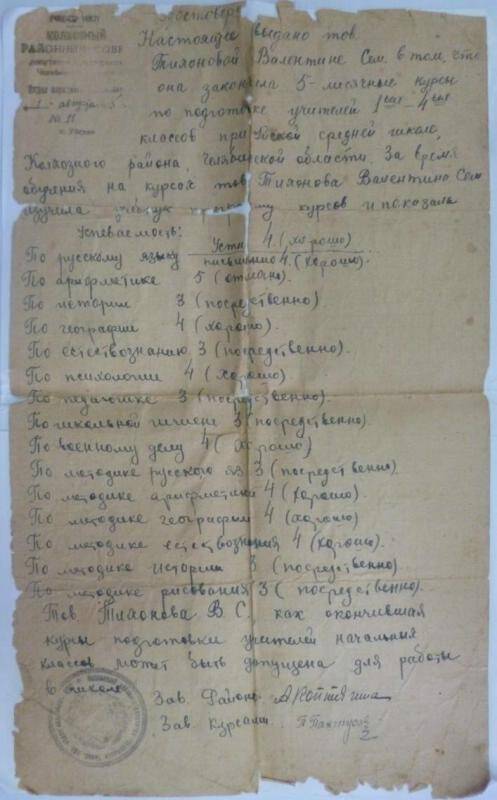 РАЙОННЫЙ СОВЕ
Настоящее выдано тов.
Тихоновой Валентине Сем. в том, что
она закончила 5-месячные курсы
по подготовке учителей 1ых-4ых
классов при средней школе,
района, области. За время
обучения на курсах тов. Тихонова Валентина Сем
изучила курсов и показала
Успеваемость:
По русскому языку устн 4. (хорошо)
письменно 4. (хорошо).
По арифметике 5 (отлично).
По истории 3 (посредственно)
По географии 4 (хорошо).
По естествознанию 3 (посредственно).
По психологии 4 (хорошо)
По педагогике 3 (посредственно).
По школьной гигиене 3 (посредственно).
По военному делу 4 (хорошо)
По методике русского яз 3 (посредственно).
По методике арифметики 4 (хорошо).
По методике географии 4 (хорошо)
По методике естествознания 4 (хорошо).
По методике истории 3 (посредственно)
По методике рисования 3 (посредственно).
Тов. Тихонова В. С. как окончившая
курсы подготовки учителей начальных
классов может быть допущена для работы
в школе
Зав. Районо
Зав. курсами